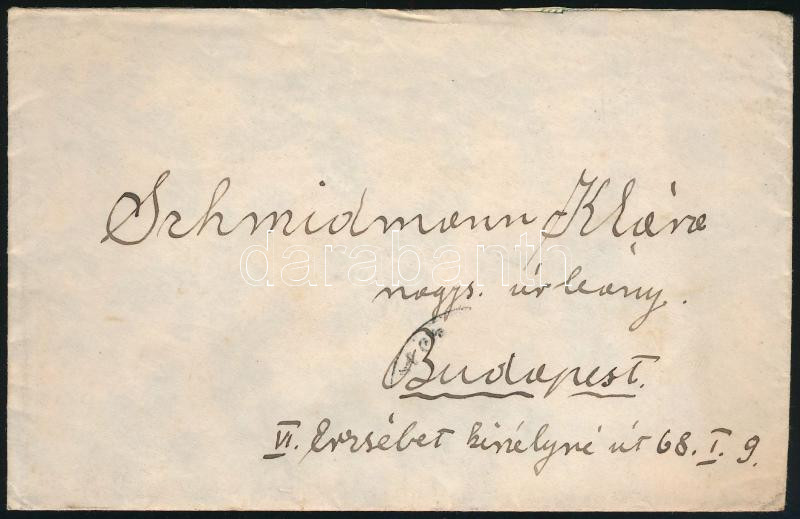 Schmidmann Klára
darabanth
nagys. úrleány.
Budapest.
VI. Erzsébet királyné út 68. I. 9.